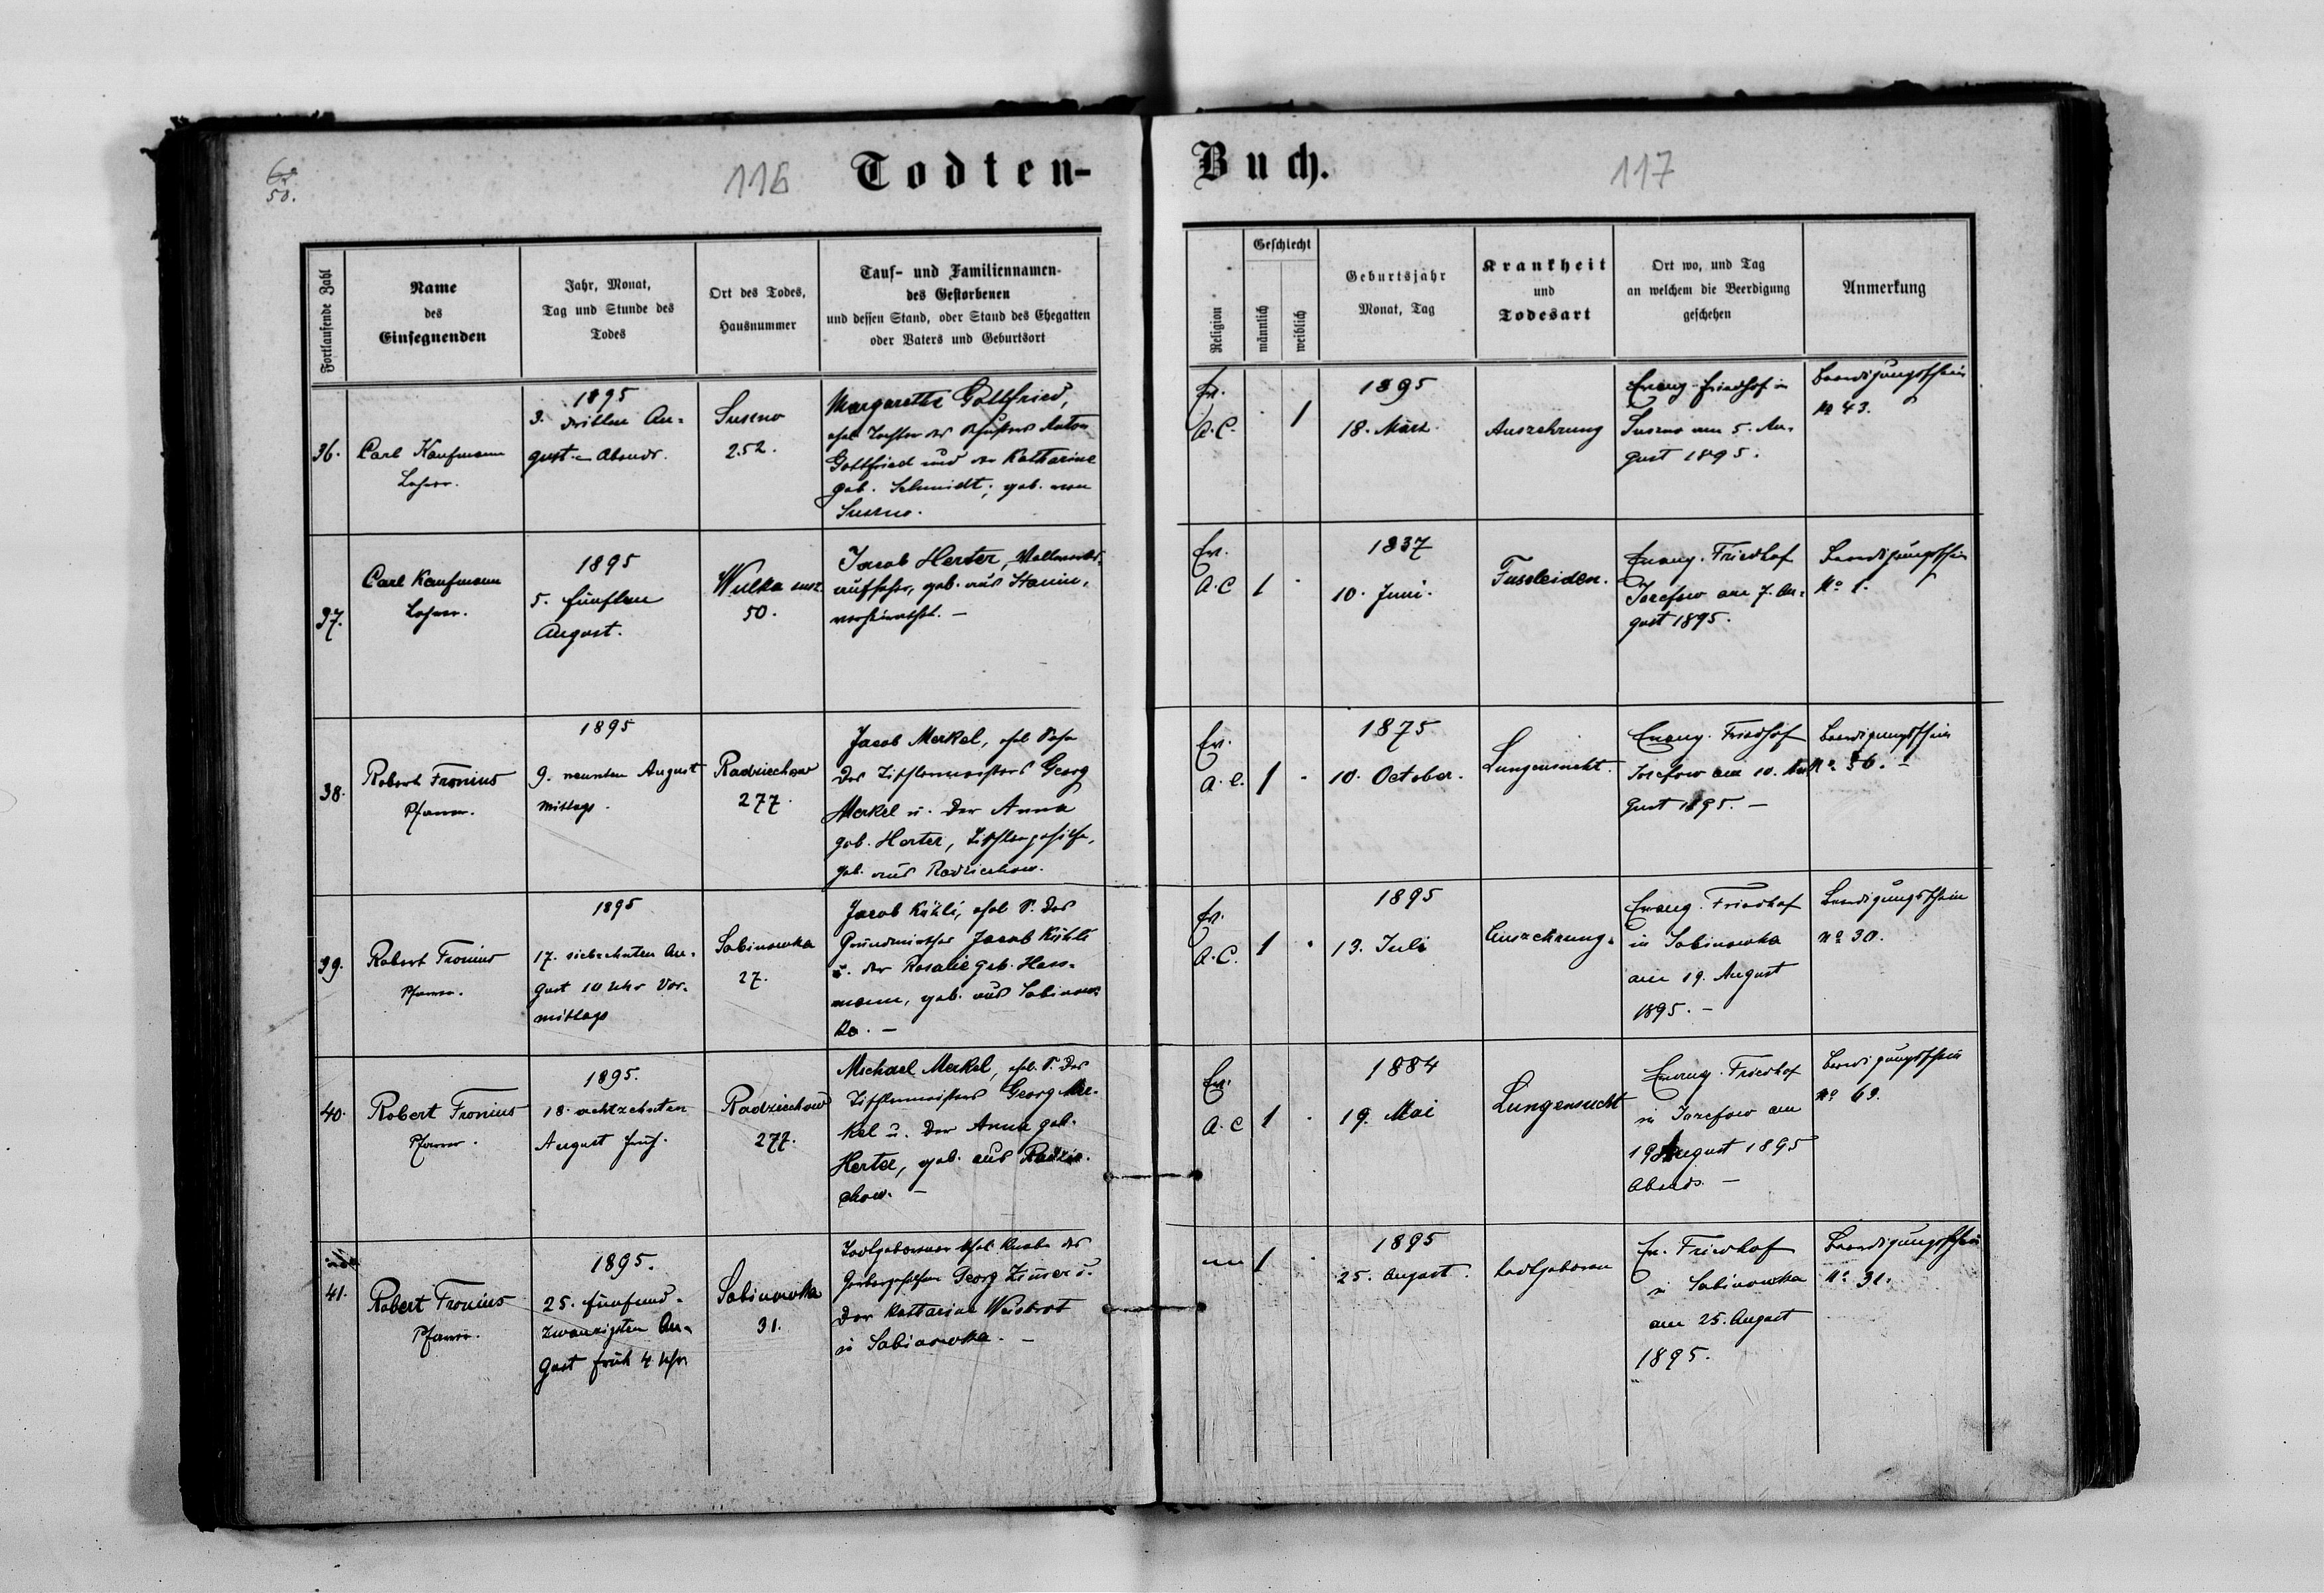 50.
116
Todten-
Buch.
117
Fortlaufende Zahl
Name
des
Einsegnenden
Jahr, Monat,
Tag und Stunde des
Todes
Ort des Todes,
Hausnummer
Tauf- und Familiennamen-
des Gestorbenen
und dessen Stand, oder Stand des Ehegatten
oder Vaters und Geburtsort
Religion
Geschlecht
männlich
weiblich
Geburtsjahr
Monat, Tag
Krankheit
und
Todesart
Ort wo, und Tag
an welchem die Beerdigung
geschehen
Anmerkung
36.
Carl Kaufmann
Lehrer.
1895
3. dritten Au-
gust Abends.
Suszno
252.
Margarethe Gottfried,
ehel. Tochter des Schusters Anton
Gottfried und der Katharine
geb. Schmidt; geb. von
Suszno.
Ev.
A.C.
1
1895
18. März.
Auszehrung
Evang. Friedhof in
Suszno am 5. Au-
gust 1895.
Beerdigungsschein
No 43.
37.
Carl Kaufmann
Lehrer.
1895
5. fünften
August.
Wulka susz.
50.
Jacob Herter,
aufseher, geb. aus Stanin,
verheirathet. —
Ev.
A.C
1
1837
10. Juni.
Fussleiden.
Evang. Friedhof
Jozefow am 7. Au-
gust 1895.
Beerdigungsschein
No 1.
38.
Robert Fronius
Pfarrer.
1895
9. neunten August
Mittags.
Radziechow
277.
Jacob Merkel, ehel. Sohn
des Tischlermeisters Georg
Merkel u. der Anna
geb. Herter, Tischlergehilfe,
geb. aus Radziechow.
Ev.
A.C.
1
1875
10. October.
Lungensucht.
Evang. Friedhof
Josefow am 10. Au-
gust 1895. —
Beerdigungsschein
No 56. —
39.
Robert Fronius
Pfarrer.
1895
17. siebzehnten Au-
gust 10 Uhr Vor-
mittags
Sabinowka
27.
Jacob Kühli, ehel. S. des
Grundwirthes Jacob Kühli
u. der Rosalie geb. Hass-
mann, geb. aus Sabinow-
ka. —
Ev.
A.C.
1
1895
13. Juli
Auszehrung.
Evang. Friedhof
in Sabinowka
am 19. August
1895. —
Beerdigungsschein
No 30.
40.
Robert Fronius
Pfarrer.
1895.
18. achtzehnten
August früh.
Radziechow
277.
Michael Merkel, ehel. S. des
Tischlermeisters Georg Mer-
kel u. der Anna geb.
Herter, geb. aus Radzie-
chow. —
Ev.
A.C
1
1884
19. Mai
Lungensucht
Evang. Friedhof
in Jozefow am
19 August 1895
Abends. —
Beerdigungsschein
No 69.
41.
Robert Fronius
Pfarrer.
1895.
25. fünfund-
zwanzigsten Au-
gust früh 4 Uhr
Sabinowka
31.
Todtgeborener ehel. Knabe des
Georg Zimer u.
der Katharine Weisbrot
in Sabinowka. —
1
1895
25. August.
todtgeboren
Ev. Friedhof
in Sabinowka
am 25. August
1895.
Beerdigungsschein
No 31.